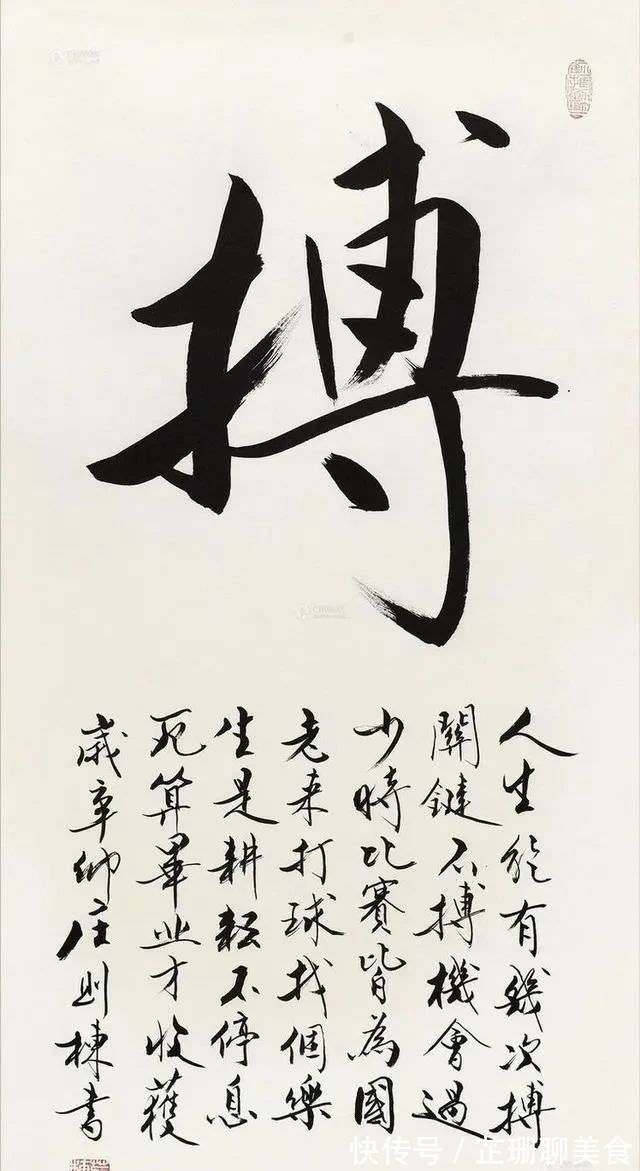 搏
人生能有幾次搏
關鍵不搏機會過
少時比賽皆為國
老来打球找個樂
生是耕耘不停息
死算畢业才收獲
歲辛卯庄则棟書
快传号 / 芷珊聊美食